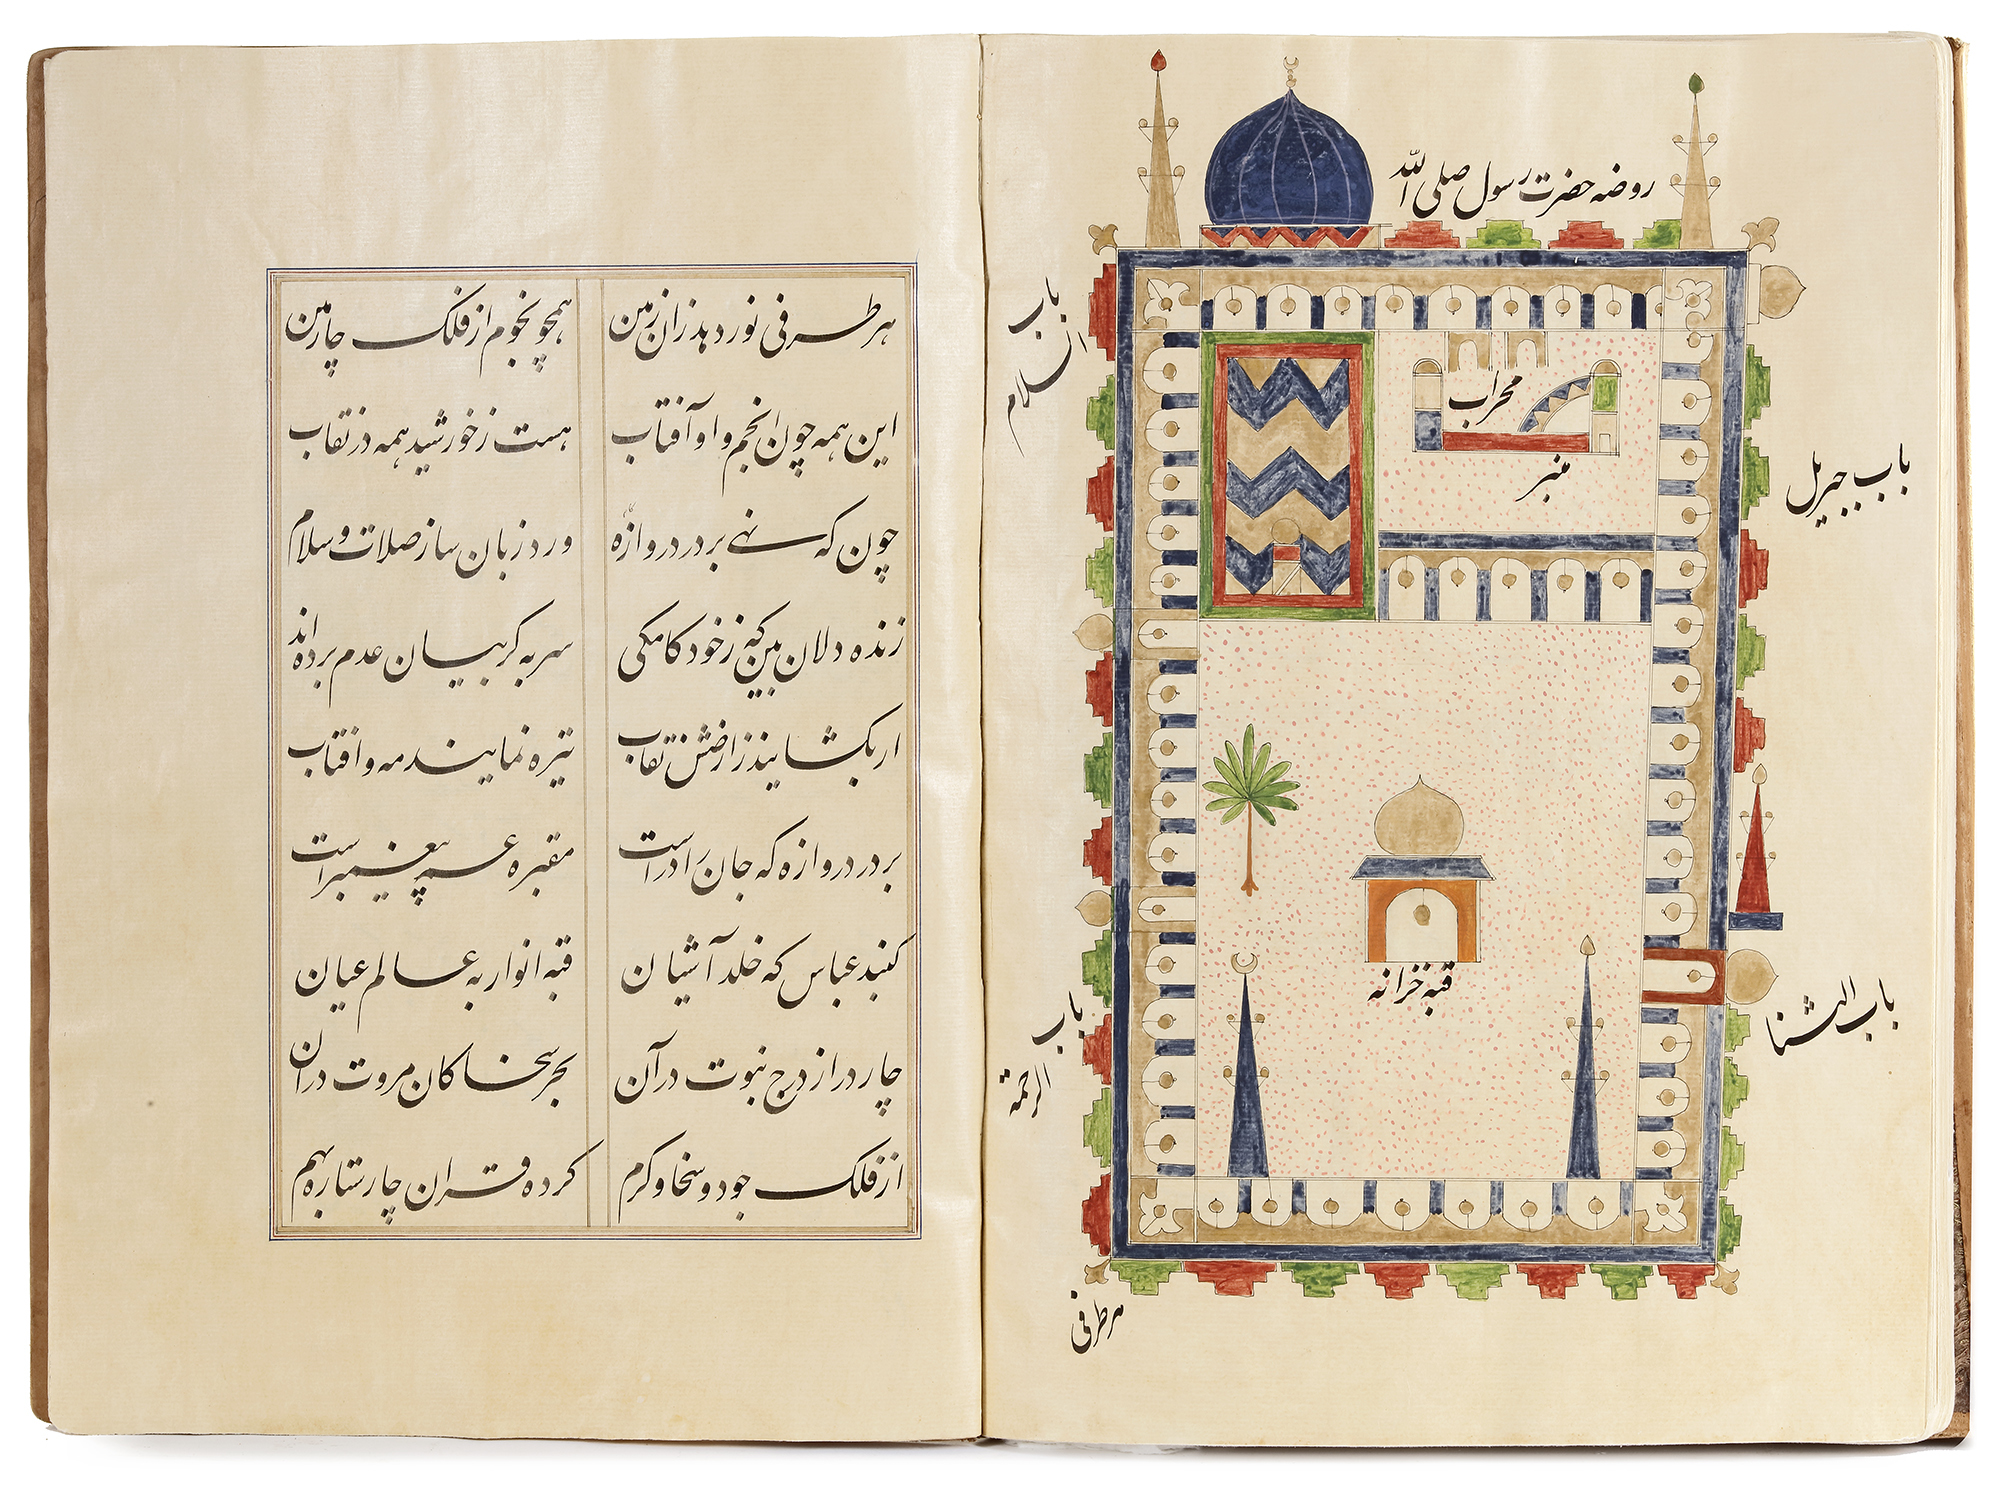 روضه حضرت رسول صلی الله
باب السلام
محراب
منبر
باب جبریل
قبه خزانه
باب الرحمة
باب النسا
هر طرفی
هر طرفی نور دهد زان زمین همچو نجوم از فلک چارمین
این همه چون انجم و او آفتاب هست ز خورشید همه در نقاب
چون که نهی بر در دروازه ورد زبان ساز صلات و سلام
زنده دلان بین که ز خود کامکی سر به گریبان عدم برده اند
ار بکشایند ز ارضش نقاب تیره نمایند مه و افتاب
بر در دروازه که جان را در است مقبره عم پیغمبر است
کنبد عباس که خلد آشیان قبه انوار به عالم عیان
چار در از درج نبوت در آن بحر سخا کان مروت در آن
از فلک جود و سخا و کرم کرده قران چار ستاره بهم